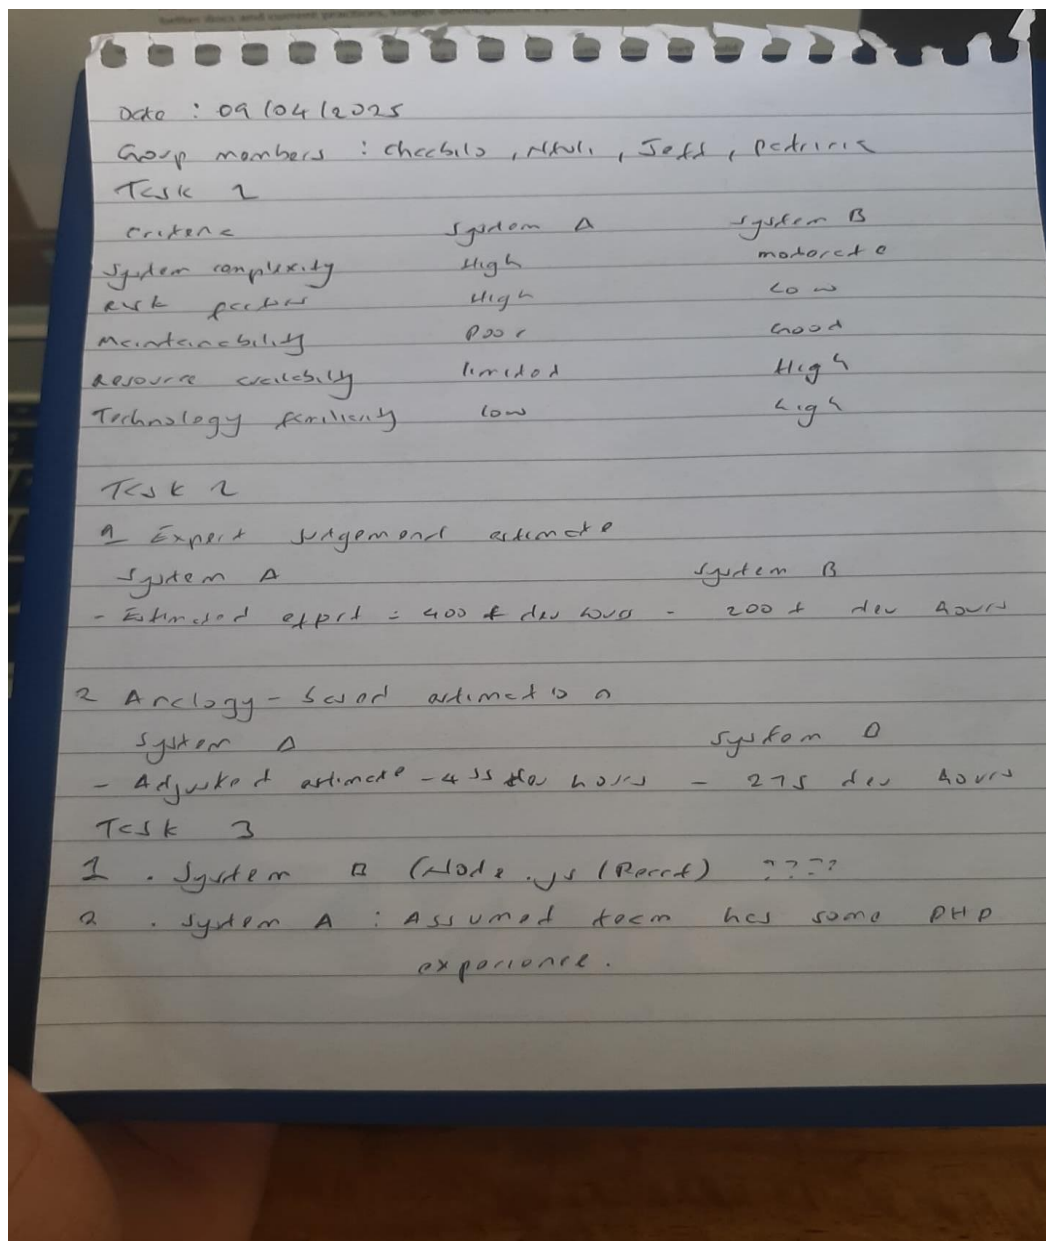 further docs and current practices, longer development
Date : 09/04/2025
Group members : Jeff,
Task 1
Criteria System A System B
System complexity High moderate
Risk factors High Low
Maintainability Poor Good
Resource availability limited High
Technology familiarity Low high
Task 2
1 Expert Judgement estimate
System A System B
- Estimated effort = 400 + dev hours - 200 + dev hours
2 Analogy - based estimation
System A System B
- Adjusted estimate - 455 dev hours - 275 dev hours
Task 3
1 . System B (Node.js (React) ????
2 . System A : Assumed team has some PHP
experience.